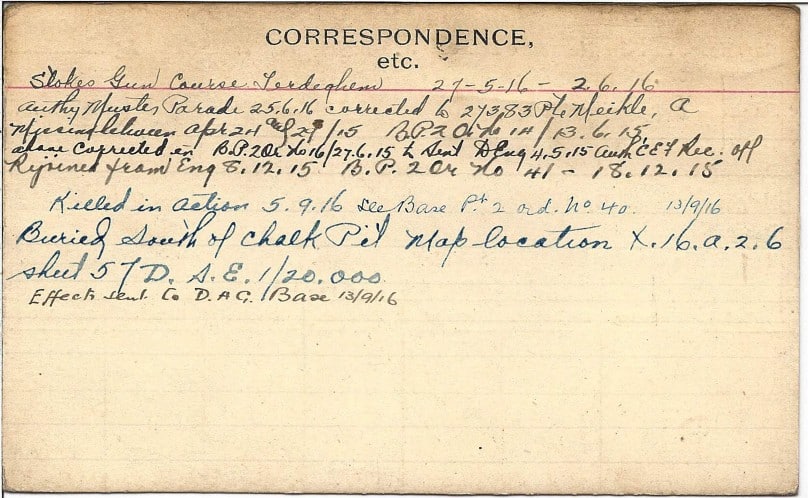 CORRESPONDENCE,
etc.
Stokes Gun Course Terdeghem 27-5-16 - 2.6.16
Authy Muster Parade 25.6.16 corrected to 27383 Pte Meikle, A
Missing between Apr 24 and 29/15 B.P. 2 Or No 14/13.6.15
above Corrected in B.P. 2 Or No 16/27.6.15 to Sent D Eng 4.5.15 Auth C.E.F Rec. off
Rejoined from Eng 8.12.15 B.P. 2 Or No 41 - 18.12.15
Killed in action 5.9.16 see Base Pt 2 ord. No. 40. 13/9/16
Buried South of Chalk Pit Map location X.16.a.2.6
sheet 57 D. S.E. 1/20.000
Effects sent to D.A.G. Base 13/9/16